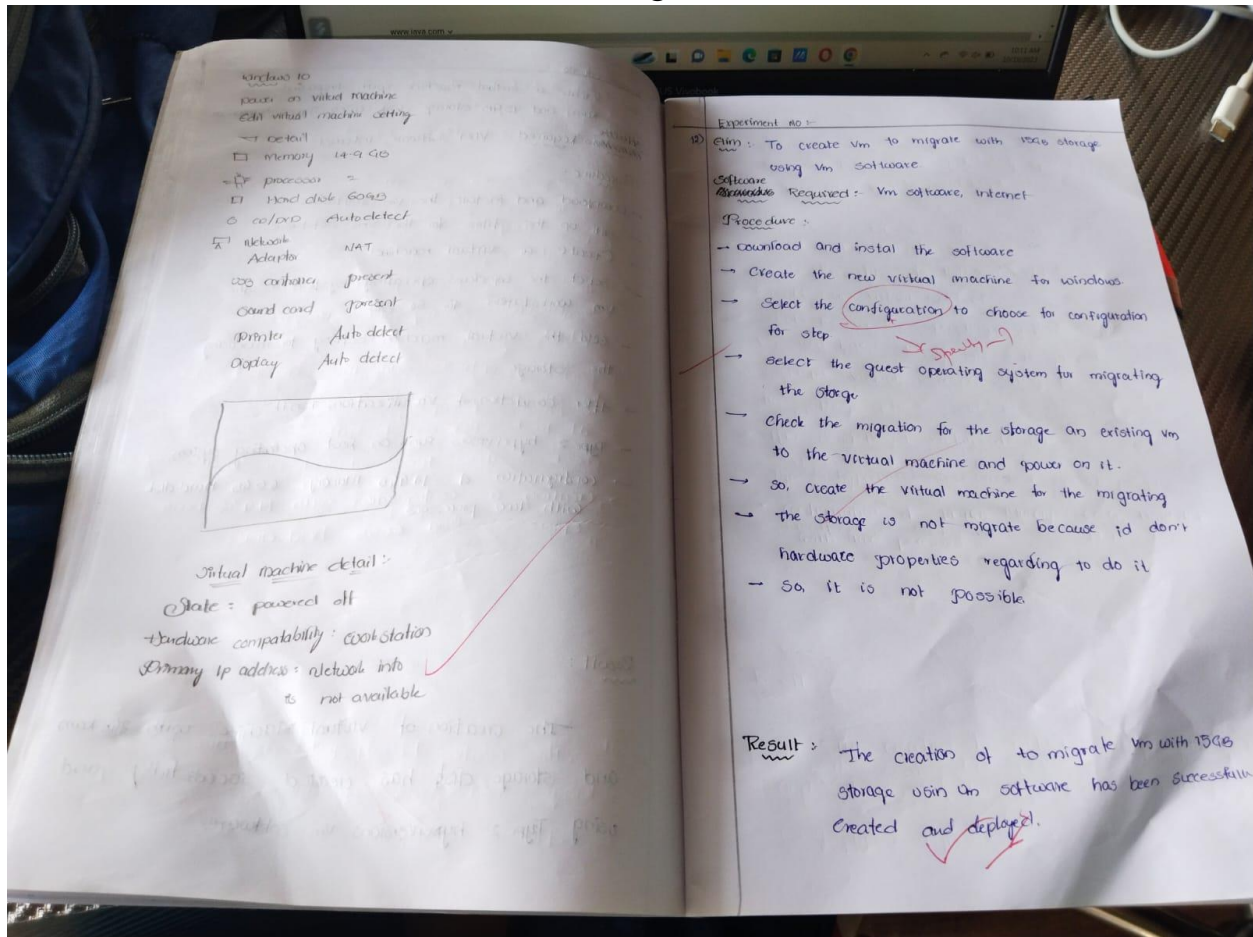 www.java.com
10:12 AM
Windows 10
power on virtual machine
Edit virtual machine setting
Detail
Memory 14.9 GB
processor 2
Hard disk 60GB
CD/DVD Autodetect
Network NAT
Adaptor
present
Sound card present
printer Auto detect
Display Auto detect
Virtual machine detail :-
State : powered off
Hardware compatability : workstation
Primary IP address : Network info
is not available
Experiment no :-
12) Aim : To create Vm to migrate with 15GB storage
using Vm software
Software
Required :- Vm software, internet
Procedure :-
→ Download and instal the software
→ Create the new virtual machine for windows
→ Select the configuration to choose for configuration
for step
specify
→ Select the guest operating system for migrating
the storge
→ Check the migration for the storage an existing vm
to the virtual machine and power on it.
→ So, create the virtual machine for the migrating
→ The storage is not migrate because id don't
hardware properties regarding to do it
→ So, it is not possible.
Result : The creation of to migrate Vm with 15GB
storage usin Vm software has been successfully
created and deployed.